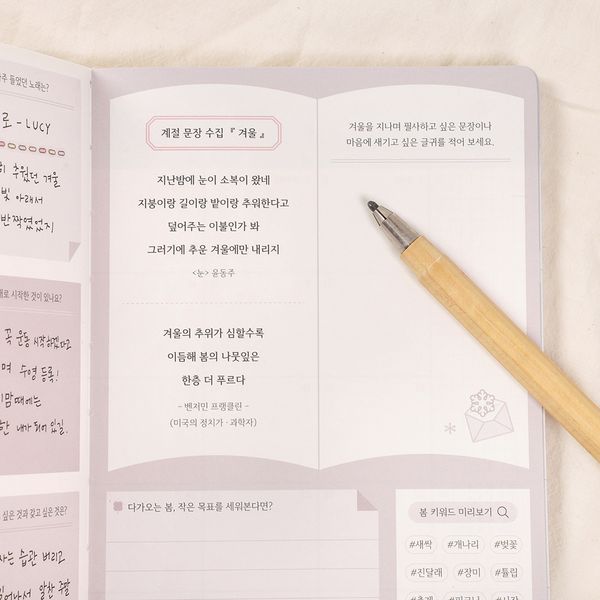 주 들었던 노래는?
로 - LUCY
추웠던 겨울
빛 아래서
반짝였었지
새로 시작한 것이 있나요?
꼭 운동 시작하겠다고
며 수영 등록!
이맘때에는
한 내가 되어 있길.
싶은 것과 갖고 싶은 것은?
사는 습관 버리고
알찬 주말
계절 문장 수집 『 겨울 』
지난밤에 눈이 소복이 왔네
지붕이랑 길이랑 밭이랑 추워한다고
덮어주는 이불인가 봐
그러기에 추운 겨울에만 내리지
<눈> 윤동주
겨울의 추위가 심할수록
이듬해 봄의 나뭇잎은
한층 더 푸르다
- 벤저민 프랭클린 -
(미국의 정치가 · 과학자)
겨울을 지나며 필사하고 싶은 문장이나
마음에 새기고 싶은 글귀를 적어 보세요.
다가오는 봄, 작은 목표를 세워본다면?
봄 키워드 미리보기
#새싹 #개나리 #벚꽃
#진달래 #장미 #튤립